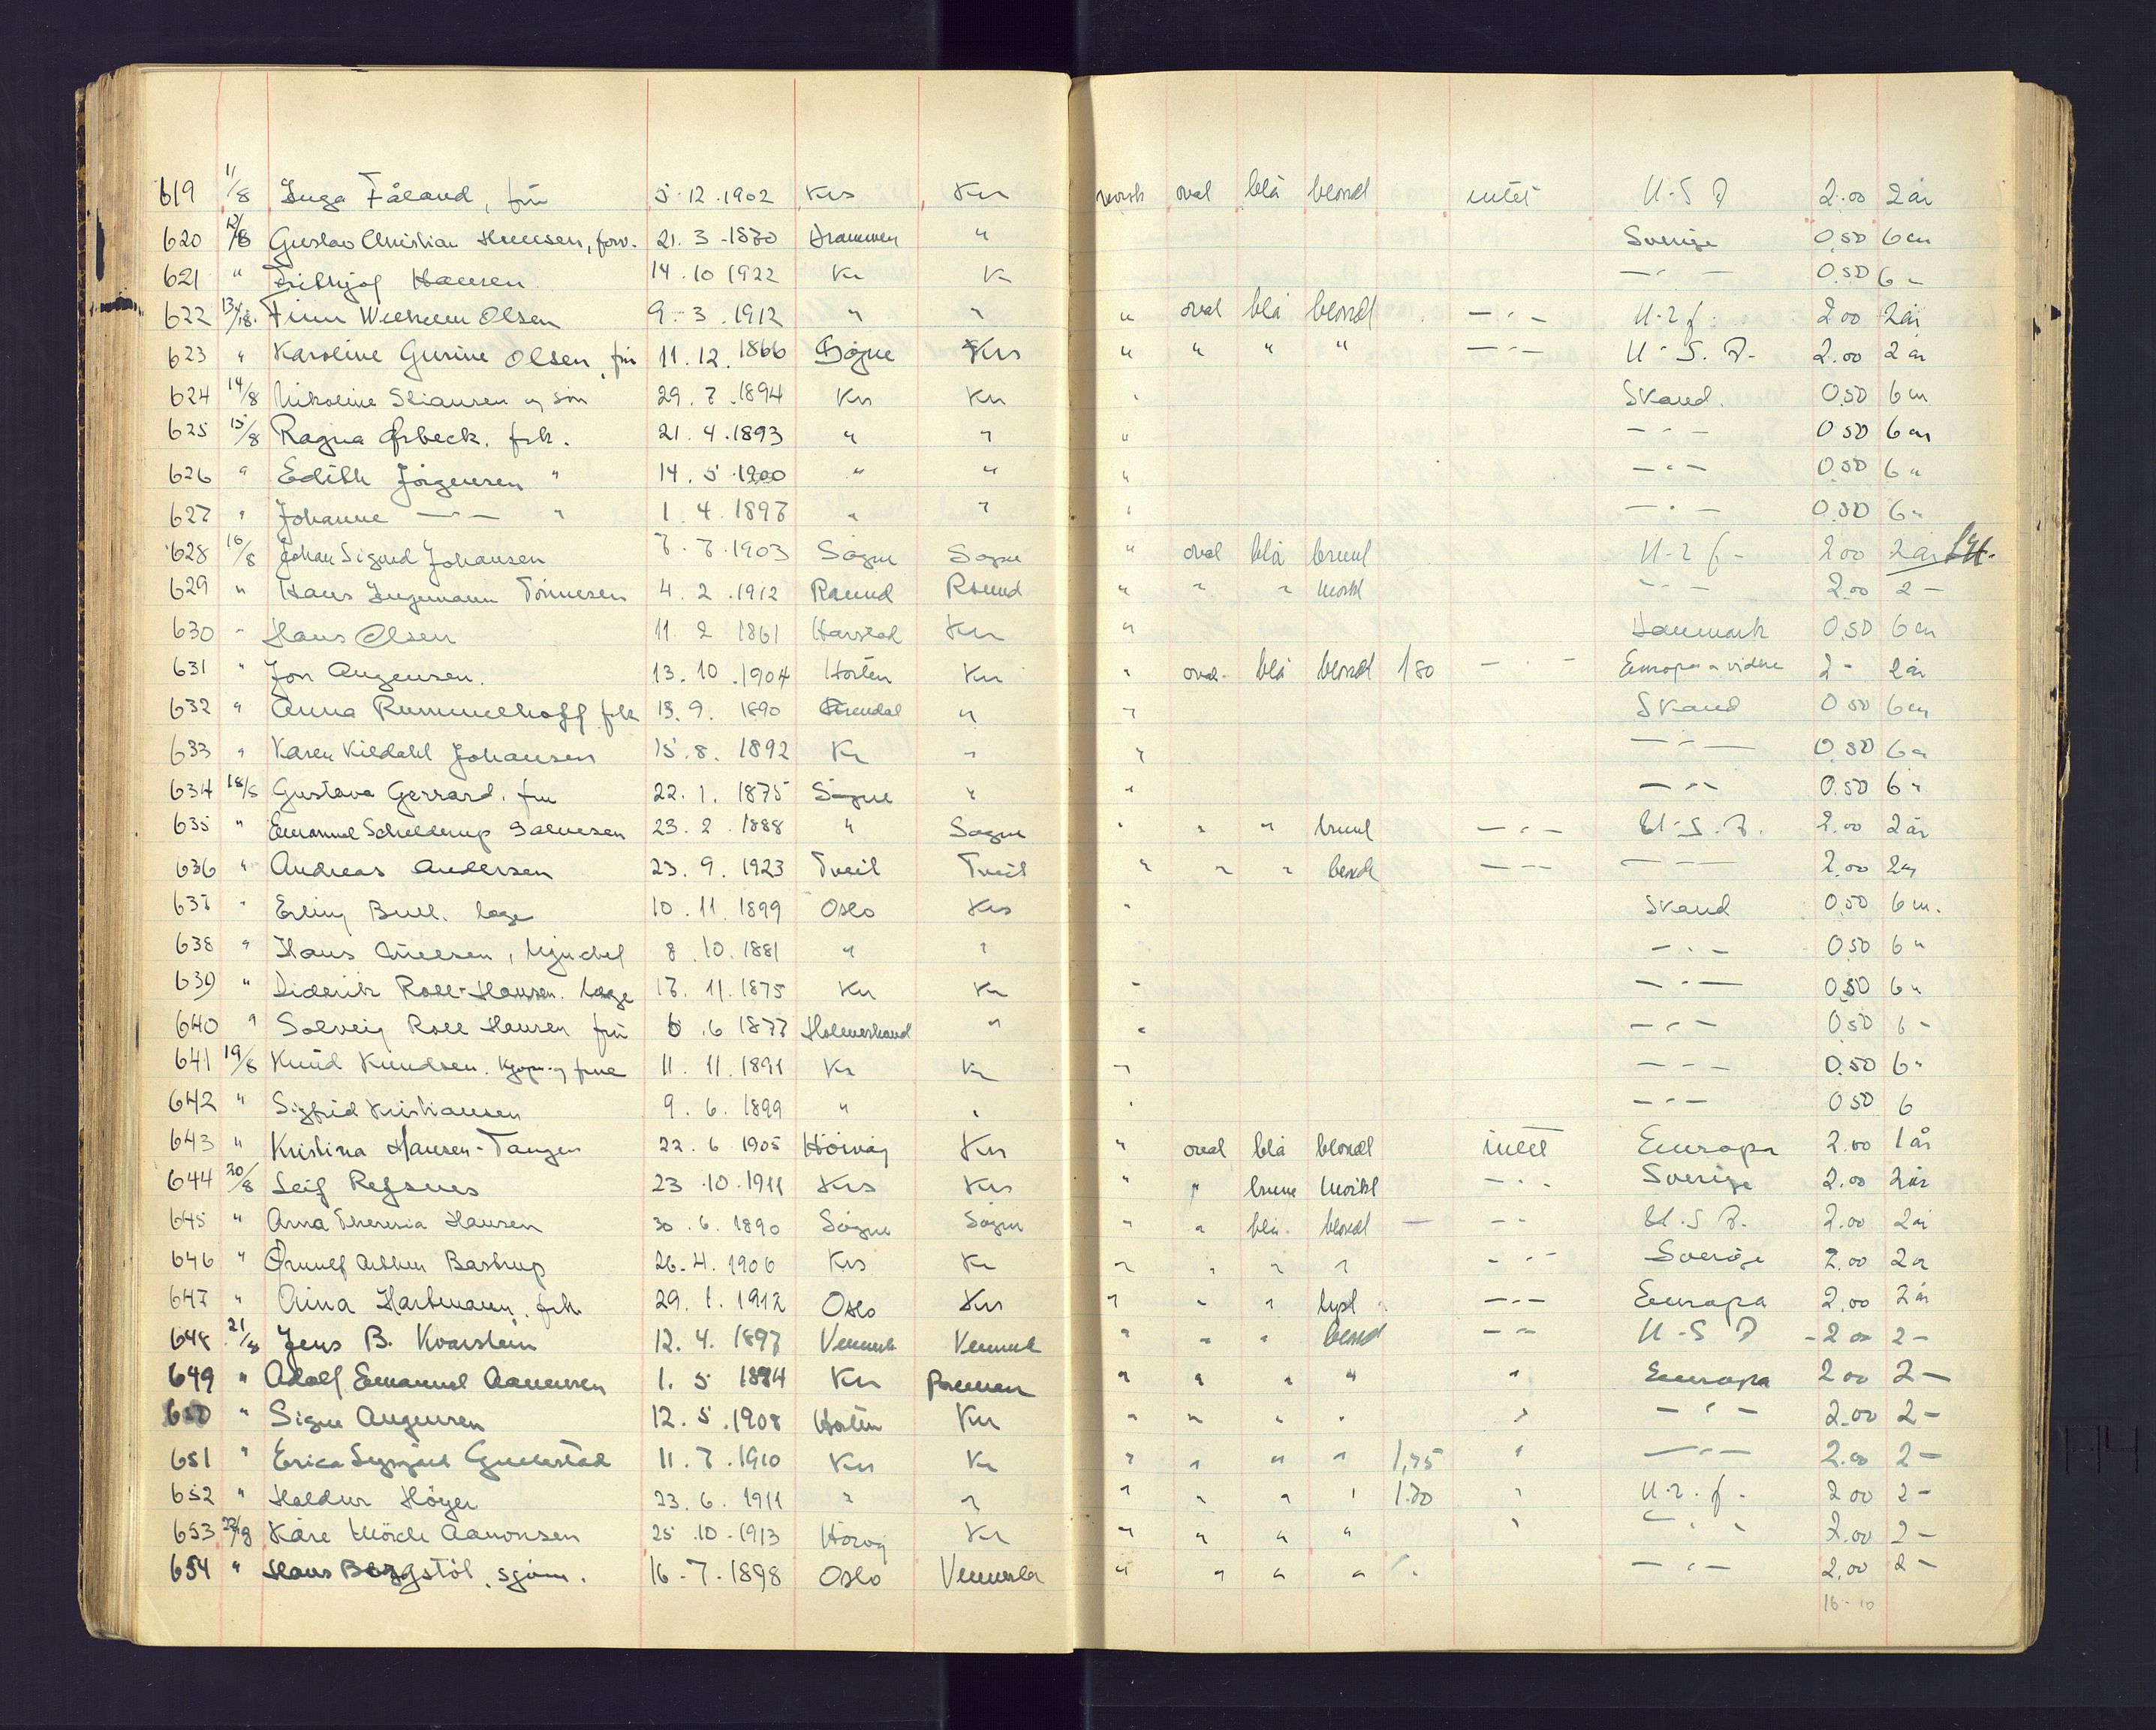 619 11/8 Inga Fåland, frú 5.12.1902 Krs Kr norsk oval blå blond intet U.S.A 2.00 2 år
620 12/8 Gustav Christian Hansen, forv. 21.3.1870 Drammen " Sverige 0,50 6 m
621 " Fridthjof Hansen 14.10 1922 Kr Kr — " — 0.50 6 "
622 13/8. Finn Wilhelm Olsen 9-3.1912 " " " oval blå blond — " — U-2 f. 2.00 2 år
623 " Karoline Gurine Olsen, frú 11.12.1866 Søgne Krs " " " " — " — U.S.A. 2.00 2 år
624 14/8 Nikoline Stiansen og søn 29.7.1894 Kr Kr " Skand. 0.50 6 m
625 15/8 Ragna Ørbeck. frk. 21.4.1893 " " " — " — 0.50 6 m
626 " Edith Jörgensen " 14.5.1900 " " " — " — 0.50 6 "
627 " Johanne — " — " 1.4.1897 " " " — " — 0.50 6 "
628 16/8 Johan Sigurd Johansen 7.7.1903 Søgne Søgne " oval blå brunt U-2 f- 2.00 2 år
629 " Hans Ingemann Tönnesen 4.2.1912 Randøsund " " " mørkt — " — 2.00 2 —
630 " Hans Olsen 11.2 1861 Harstad Kr " Danmark 0.50 6 m
631 " Jon Augensen. 13.10.1904 Horten Kr " oval blå blond 180 — " — Europa o videre 2 - 2 år
632 " Anna Rummelhoff frk 13.9. 1890 Arendal " " Skand 0 50 6 m
633 " Karen Kildahl Johansen 15.8. 1892 Kr " " — " — 0.50 6 "
634 18/8 Gustava Gerrard. frú 22.1. 1875 Søgne " " — " — 0.50 6 "
635 " Emanuel Schelderup Salvesen 23.2.1888 " Søgne " " " brunt — " — U.S.A. 2.00 2 år
636 " Andreas Andersen 23.9.1923 Tveit Tveit " " " blond — " — — " — 2.00 2 "
637 " Erling Bull. læge 10.11.1899 Oslo Krs " Skand 0,50 6 m.
638 " Hans Nielsen, 8.10.1881 " " — " — 0.50 6 "
639 " Diderik Roll-Hansen. læge 17.11.1875 Kr Kr " — " — 0.50 6 "
640 " Solveig Roll Hansen frú 6.6 1877 Holmestrand " " — " — 0.50 6 -
641 19/8 Knud Knudsen. kjøpm. og frue 11.11.1891 Kr Kr " — " — 0.50 6 "
642 " Sigfrid Kristiansen 9.6.1899 " " " — " — 0 50 6
643 " Kristina Hansen-Tangen 22.6 1905 Høivåg Kr " oval blå blond intet Europa 2.00 1 år
644 20/8 Leif Refsnes 23.10.1911 Krs Krs " " brune mörkt — " — Sverige 2.00 2 år
645 " Anna Theresia Hansen 30.6.1890 Søgne Søgne " " blå blond — " — U.S.A. 2.00 2 år
646 " Ørnulf Arthur Bastrup 26.4.1906 Krs Kr " " " " — " — Sverige 2.00 2 år
647 " Aina Hartmann. frk. 29.1.1912 Oslo Krs " " " lyst — " — Europa 2.00 2 år
648 21/8 Jens B. Kvarstein 12.4.1897 Vennesla Vennesla " " " blond — " — U.S.A -2 00 2 -
649 " Adolf Emanuel Aanensen 1.5 1894 Kr " " " " " Europa 2 00 2 —
650 " Signe Augensen 12.5.1908 Horten Kr " " " " " — " — 2.00 2 -
651 " Erica 11.7.1910 Kr Kr " " " " 1,75 " — " — 2.00 2 —
652 " Haldur Höyer 23.6.1911 " " " " " " 1.70 " U.2.f. 2 00 2 -
653 22/8 Kåre Mörch Aanonsen 25.10.1913 Høvåg Kr " " " " " — " — 2.00 2 -
654 " Hans Borgstöl, sjöm. 16.7.1898 Oslo Vennesla " " " " — " — 2.00 2 -
16.10